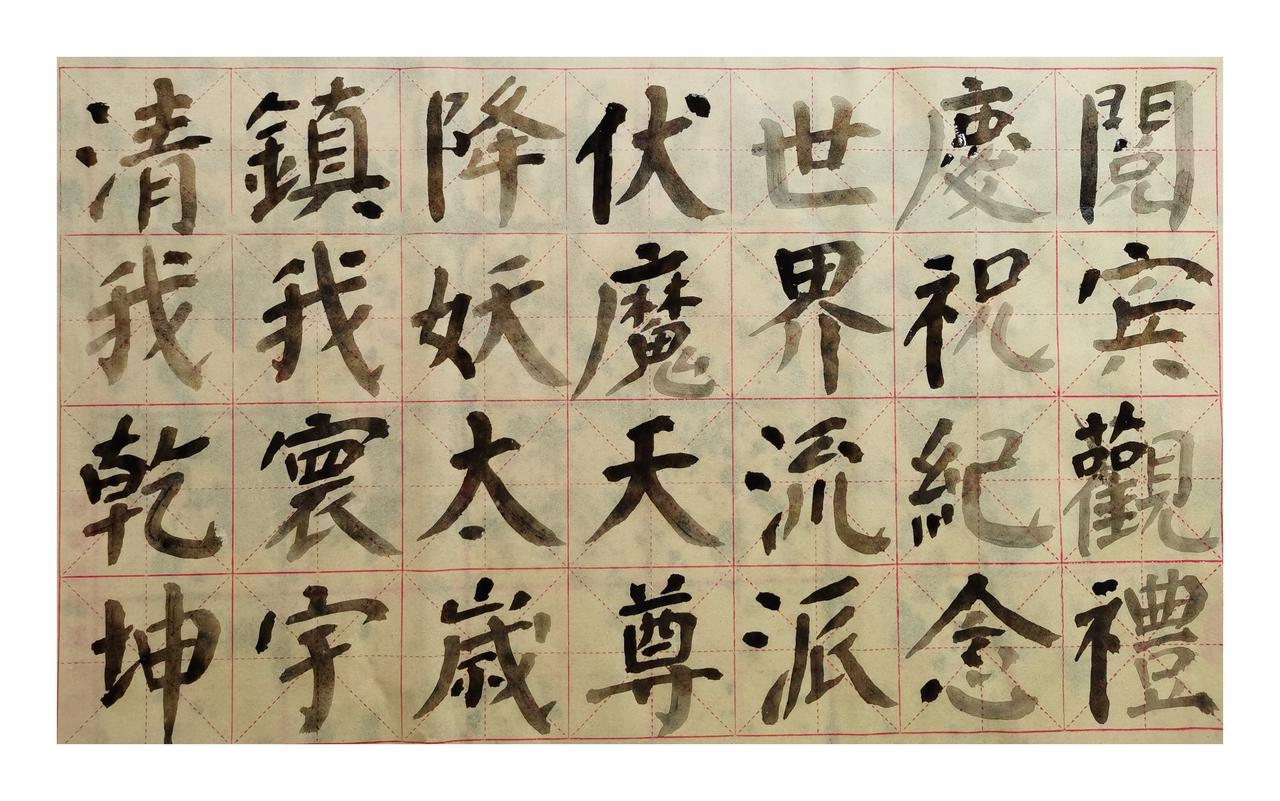 閲宾觀禮
慶祝紀念
世界流派
伏魔天尊
降妖太歳
鎮我寰宇
清我乾坤